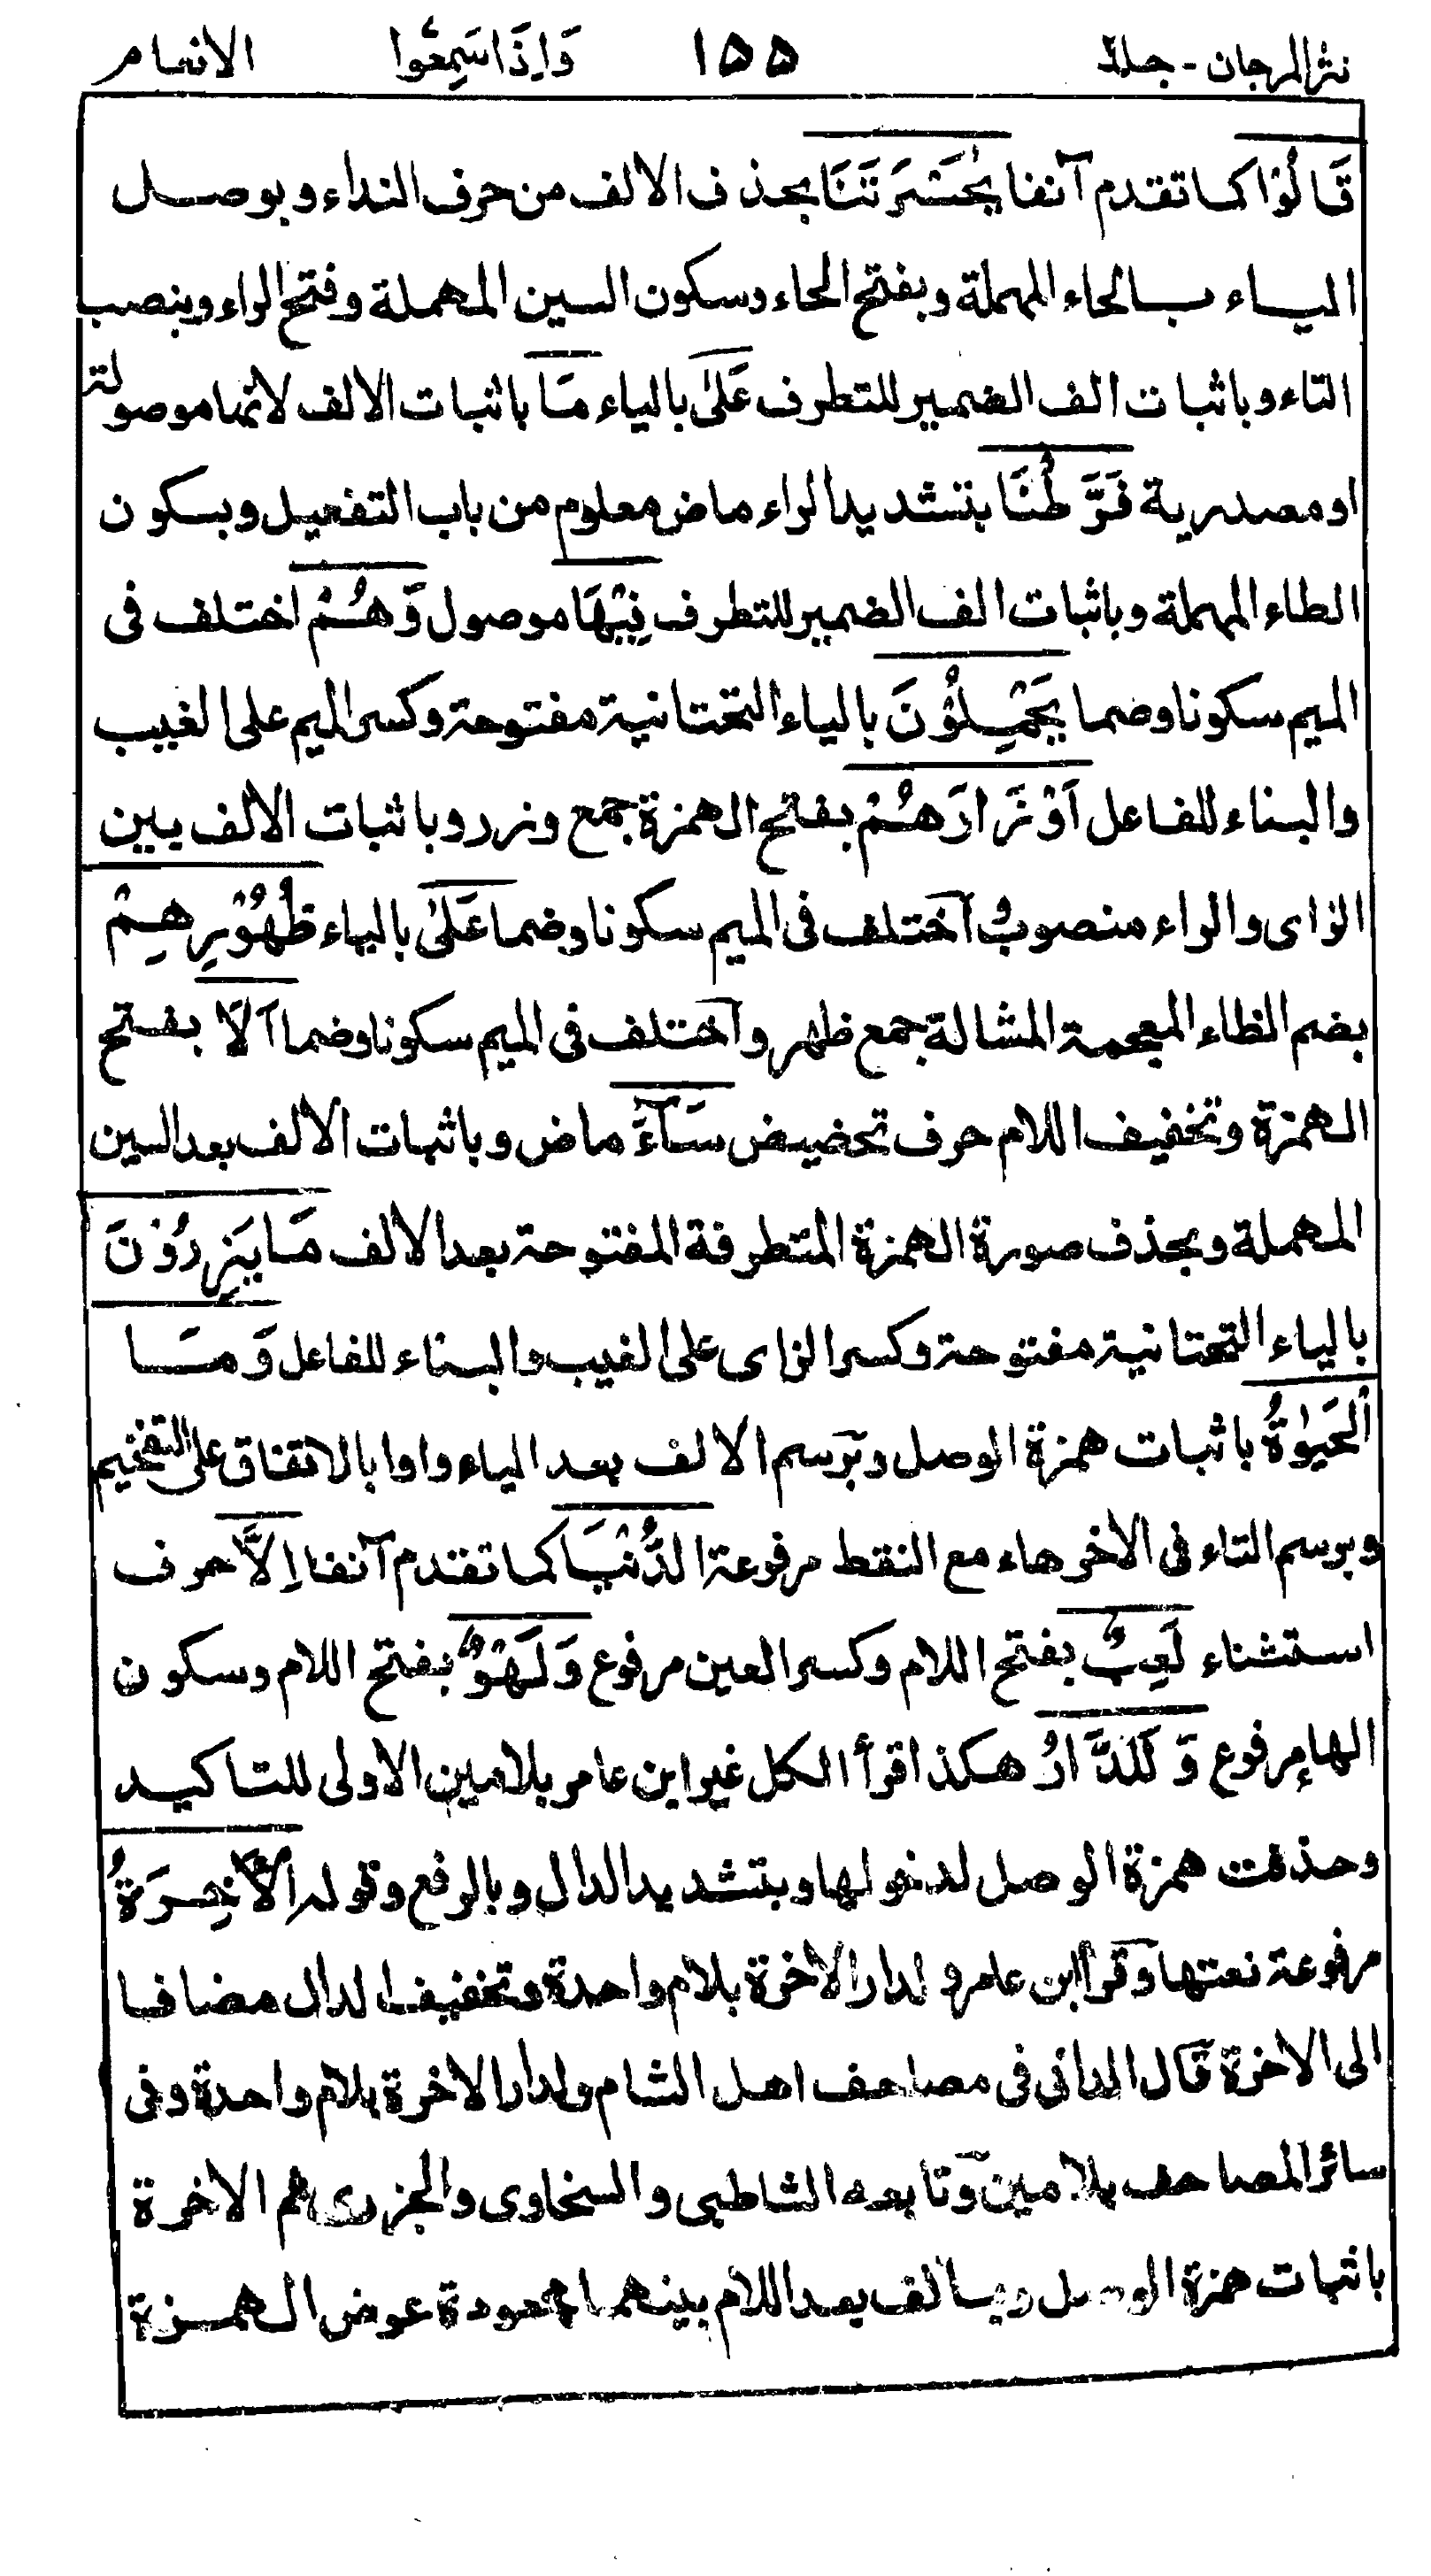 نثر المرجان - جلد ٢ ١٥٥ وَاِذَا سَمِعُوْا الانعام
قَالُوْا كما تقدم آنفا يٰحَسْرَتَنَا بحذف الالف من حرف النداء وبوصل
الياء بالحاء المهملة وبفتح الحاء وسكون السين المهملة وفتح الراء وبنصب
التاء وباثبات الف الضمير للتطرف عَلٰى بالياء مَا باثبات الالف لانها موصولة
او مصدرية فَرَّطْنَا بتشديد الراء ماض معلوم من باب التفعيل وبسكون
الطاء المهملة وباثبات الف الضمير للتطرف فِيْهَا موصول وَهُمْ اختلف فى
الميم سكونا وضما يَحْمِلُوْنَ بالياء التحتانية مفتوحة وكسر الميم على الغيب
والبناء للفاعل اَوْزَارَهُمْ بفتح الهمزة جمع وزر وباثبات الالف بين
الزاى والراء منصوبٌ اختلف فى الميم سكونا وضما عَلٰى بالياء ظُهُوْرِهِمْ
بضم الظاء المعجمة المشالة جمع ظهر واختلف فى الميم سكونا وضما اَلَا بفتح
الهمزة وتخفيف اللام حرف تحضيض سَآءَ ماض وباثبات الالف بعد السين
المهملة وبحذف صورة الهمزة المتطرفة المفتوحة بعد الالف مَا يَزِرُوْنَ
بالياء التحتانية مفتوحة وكسر الزاى على الغيب والبناء للفاعل وَمَــا
الْحَيٰوةُ باثبات همزة الوصل وبرسم الالف بعد الياء واوا بالاتفاق على التفخيم
وبرسم التاء فى الاخر هاء مع النقط مرفوعة الدُّنْيَا كما تقدم آنفا اِلَّا حرف
استثناء لَعِبٌ بفتح اللام وكسر العين مرفوع وَلَهْوٌ بفتح اللام وسكون
الهاء مرفوع وَلَلدَّارُ هكذا قرأ الكل غير ابن عامر بلامين الاولى للتاكيد
وحذفت همزة الوصل لدخولها وبتشديد الدال وبالرفع وقوله الْاٰخِرَةُ
مرفوعة نعتها وقرأ ابن عامر ولدار الاخرة بلام واحدة وتخفيف الدال مضافا
الى الاخرة قال الدانى فى مصاحف اهل الشام ولدار الاخرة بلام واحدة وفى
سائر المصاحف بلامين وتابعه الشاطبى والسخاوى والجزرى ثم الاخرة
باثبات همزة الوصل وبالف بعد اللام بينهما ممدودة عوض الهمزة